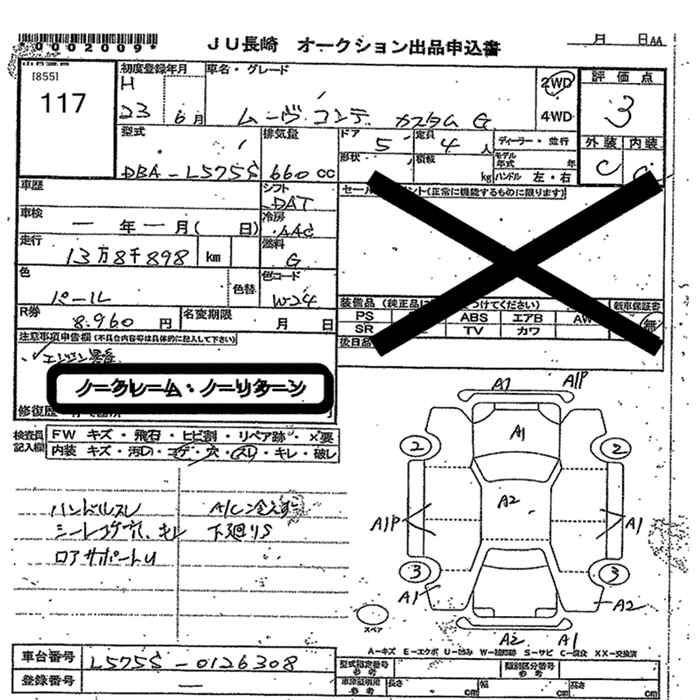 *0002009*
JU長崎 オークション出品申込書
月 日 AA
[855]
117
初度登録年月
H
23 6月
車名・グレード
ムーヴ コンテ カスタム G
2WD
4WD
評価点
3
外装 内装
C C
型式
DBA-L575S
排気量
660 cc
ドア
5
定員
4 人
形状
積載
kg
ディーラー・並行
モデル年式 年
ハンドル 左・右
車歴
シフト
DAT
車検
一 年 一 月( 日)
冷房
AAC
走行
13万8千898 km
燃料
G
色
パール
色替
色コード
W24
R券
8.960 円
名変期限
月 日
装備品
PS ABS エアB AW
SR TV カワ
新車保証書
無
後日品
注意事項申告欄(不具合内容等は具体的に記入して下さい)
ノークレーム・ノーリターン
修復歴
検査員
記入欄
FW キズ・飛石・ヒビ割・リペア跡・×要
内装 キズ・汚れ・コゲ・穴・スレ・キレ・破レ
ハンドルスレ A/C冷えず
シートコゲ穴、キレ 下廻りS
ロアサポートU
A1 A1P
A1
2 2
A2
A1P A1
3 3
A1 A2
スペア
A2 A1
A-キズ E-エクボ U-凹み W-補修跡 S-サビ C-腐食 XX-交換済
車台番号
L575S-0126308
登録番号
一
型式指定番号
参考
類別区分番号
参考
車体寸法
参考
長さ cm 幅 cm 高さ cm